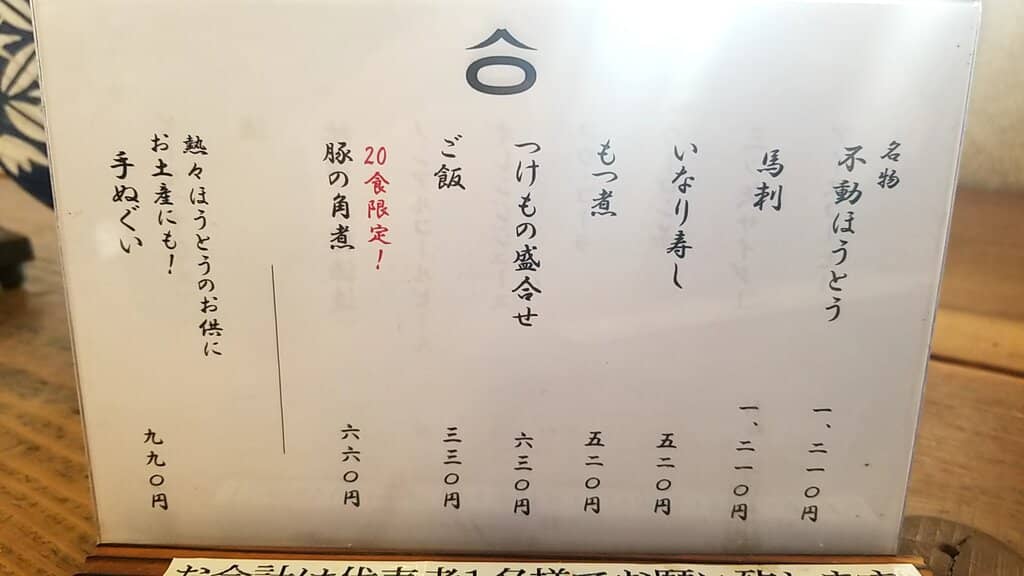 名物
不動ほうとう
一、二一〇円
馬刺
一、二一〇円
いなり寿し
五二〇円
もつ煮
五二〇円
つけもの盛合せ
六三〇円
ご飯
三三〇円
20食限定!
豚の角煮
六六〇円
熱々ほうとうのお供に
お土産にも!
手ぬぐい
九九〇円
お会計は代表者1名様でお願い致します